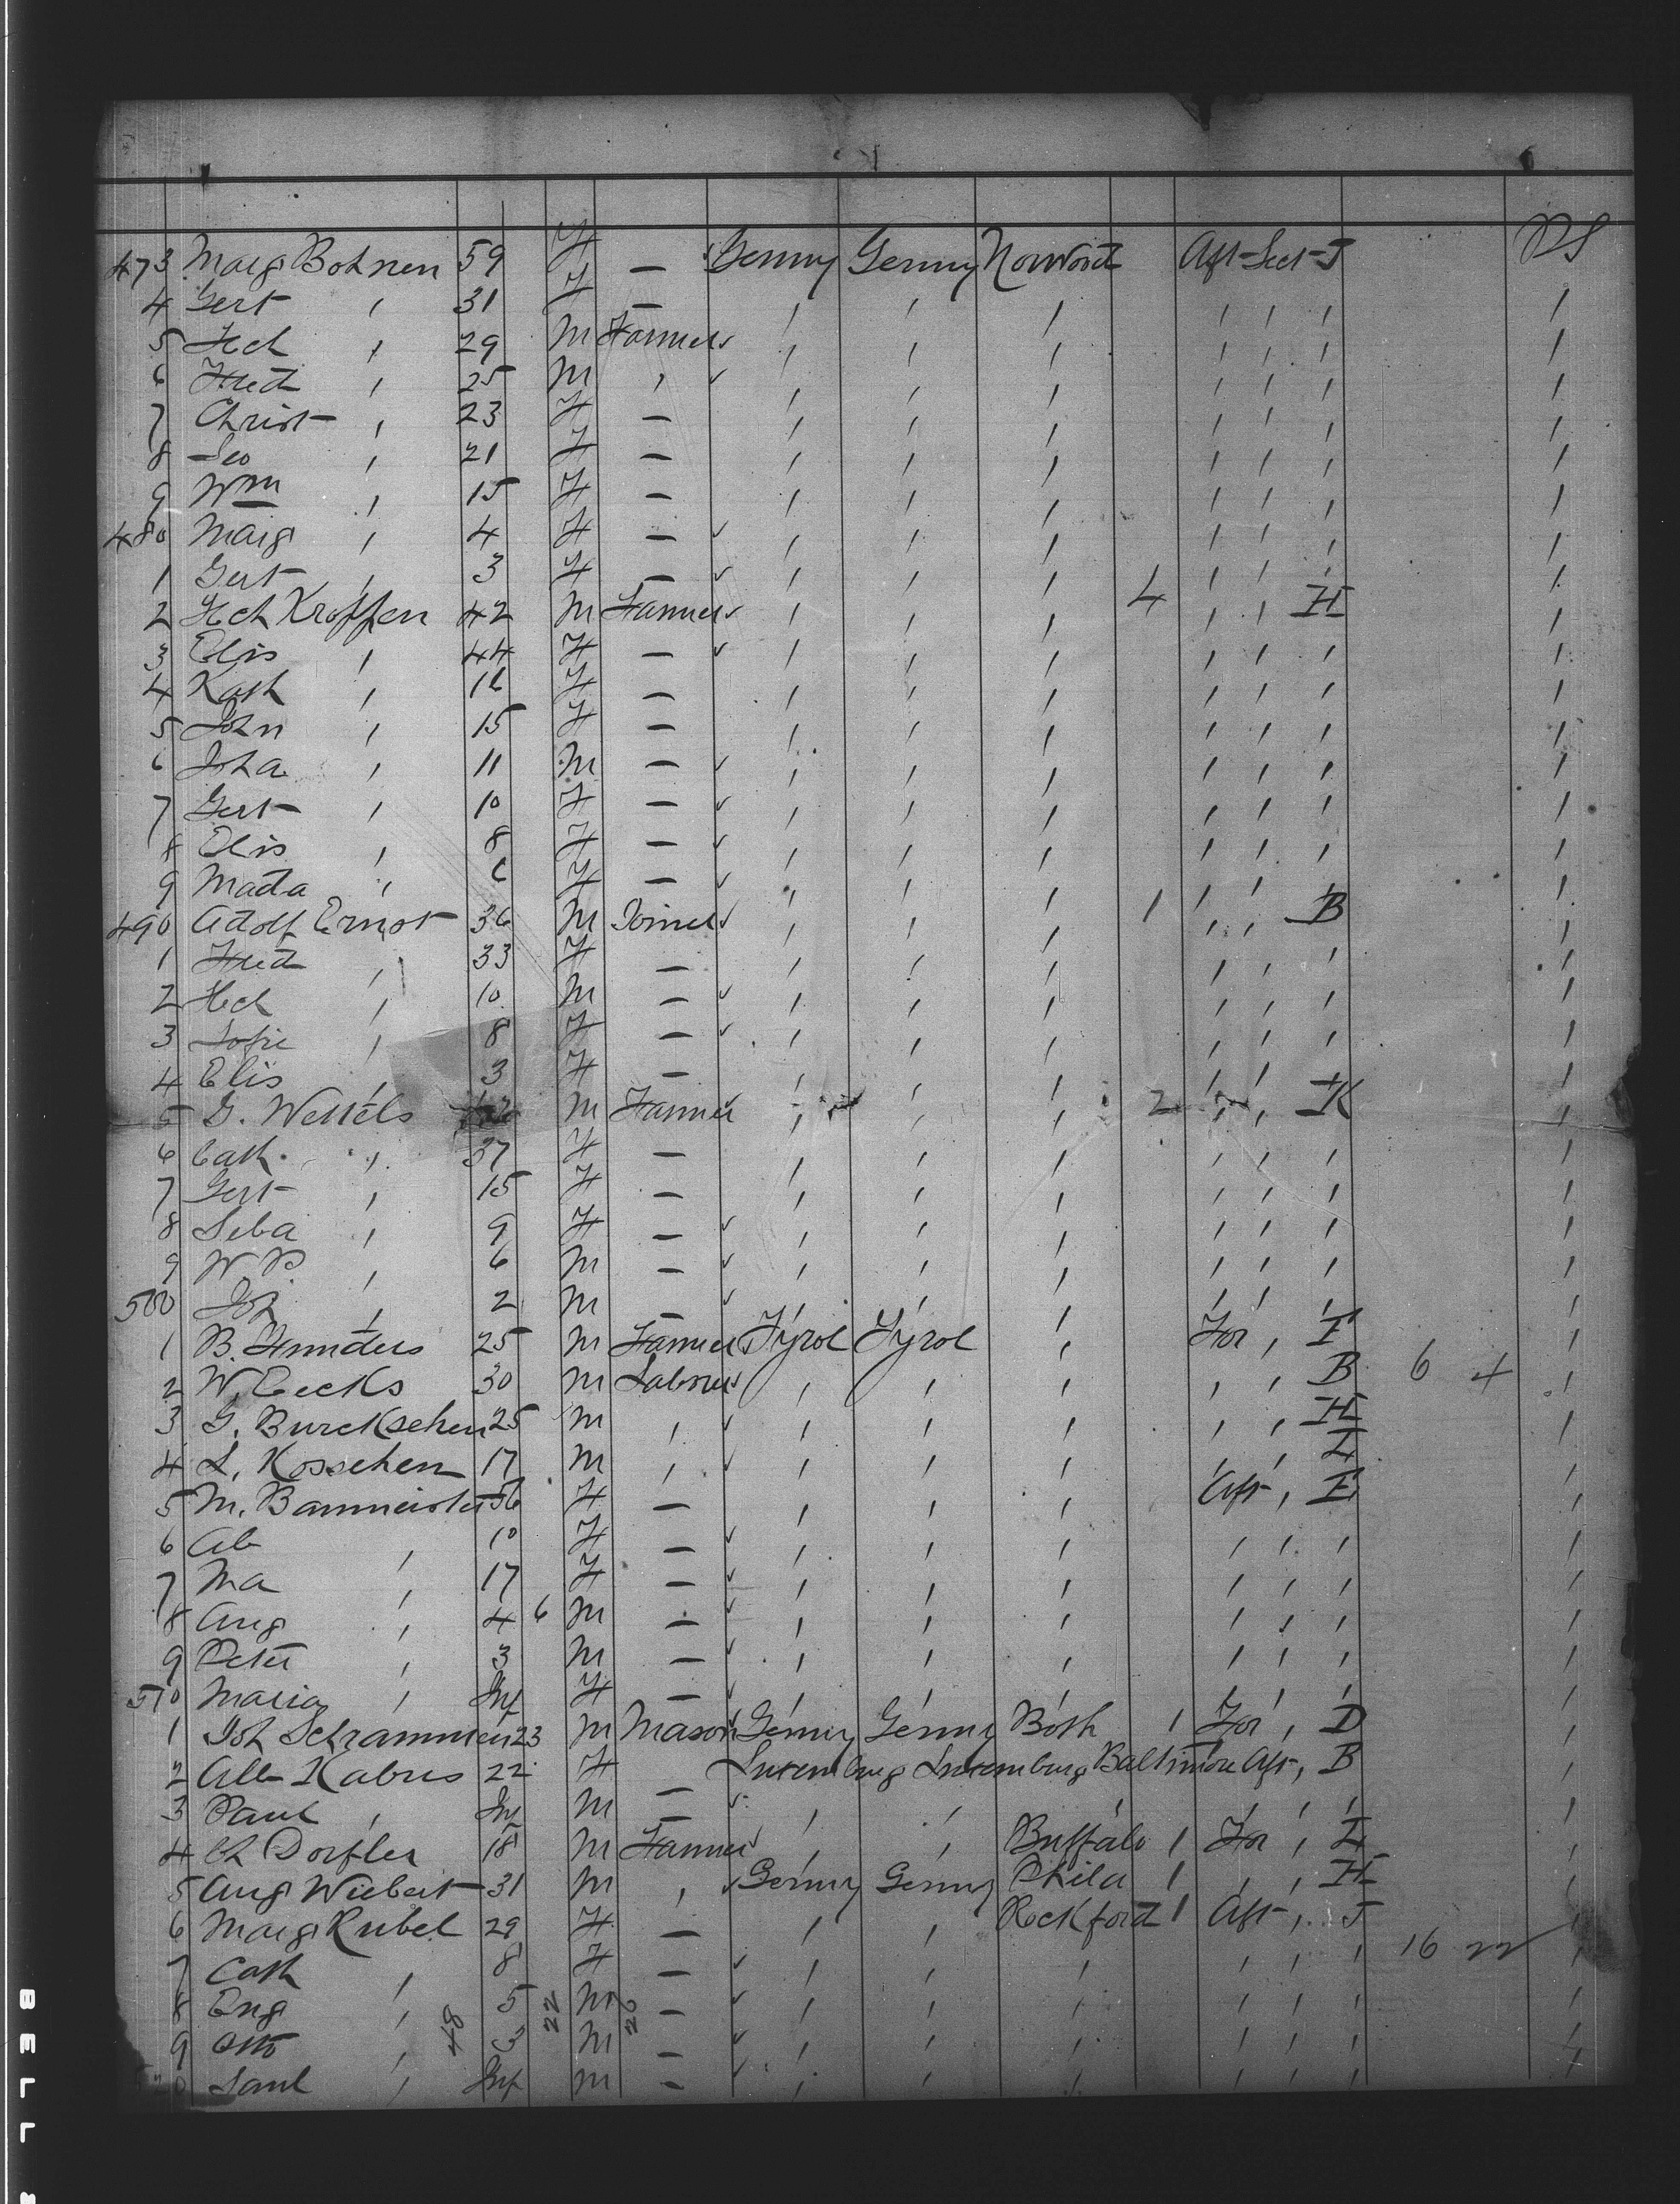 473 Marg Bohnen 59 F — Germny Germny Norwood Aft Sect J PS
4 Gert " 31 F — " " " " " " "
5 Hch " 29 M Farmer " " " " " " "
6 Fried " 25 M " " " " " " " "
7 Christ " 23 F — " " " " " " "
8 Leo " 21 F — " " " " " " "
9 Wm " 15 F — " " " " " " "
480 Marg " 4 F — " " " " " " "
1 Gert " 3 F — " " " " " " "
2 Hch Kroffen 42 M Farmer " " " 4 " " H "
3 Elis " 44 F — " " " " " " "
4 Kath " 16 F — " " " " " " "
5 John " 15 F — " " " " " " "
6 Joha " 11 M — " " " " " " "
7 Gert " 10 F — " " " " " " "
8 Elis " 8 F — " " " " " " "
9 Mada " 6 F — " " " " " " "
490 Adolf Ernst 36 M Joiner " " " 1 " " B "
1 Fried " 33 F — " " " " " " "
2 Hch " 10 M — " " " " " " "
3 Sofie " 8 F — " " " " " " "
4 Elis " 3 F — " " " " " " "
5 G. Wessels M Farmer " " " 2 " " K "
6 Cath " 37 F — " " " " " " "
7 Gert " 15 F — " " " " " " "
8 Seba " 9 F — " " " " " " "
9 W P. " 6 M — " " " " " " "
500 Joh " 2 M — " " " " " " "
1 B. 25 M Farmer Tyrol Tyrol " For " F
2 W. Eecks 30 M Laborer " " " " " B 6 4 "
3 G. Burckschen 25 M " " " " " " H "
4 L. Kosschen 17 M " " " " " " L "
5 M. Baumeister 36 F — " " " Aft " E "
6 Ab " 10 F — " " " " " " "
7 Ma " 17 F — " " " " " " "
8 Aug " 4 6 M — " " " " " " "
9 Peter " 3 M — " " " " " " "
510 Maria " Inf F — " " " " " " "
1 Joh Schrammen 23 M Mason Germny Germny Both 1 For " D "
2 Alb Kabus 22 F Luxemburg Luxemburg Baltimore Aft " B
3 Paul " Inf M — " " " " " " "
4 Ch Dorfler 18 M Farmer " " Buffalo 1 For " L "
5 Aug Wiebert 31 M " Germny Germny Phila 1 " " H "
6 Marg Rubel 29 F — " " Rockford 1 Aft " J "
7 Cath " 8 F — " " " " " " 16 22 "
8 Eug " 5 M — " " " " " " "
9 Otto " 3 M — " " " " " " "
0 Saul " Inf M — " " " " " "
48 22 26
BELL